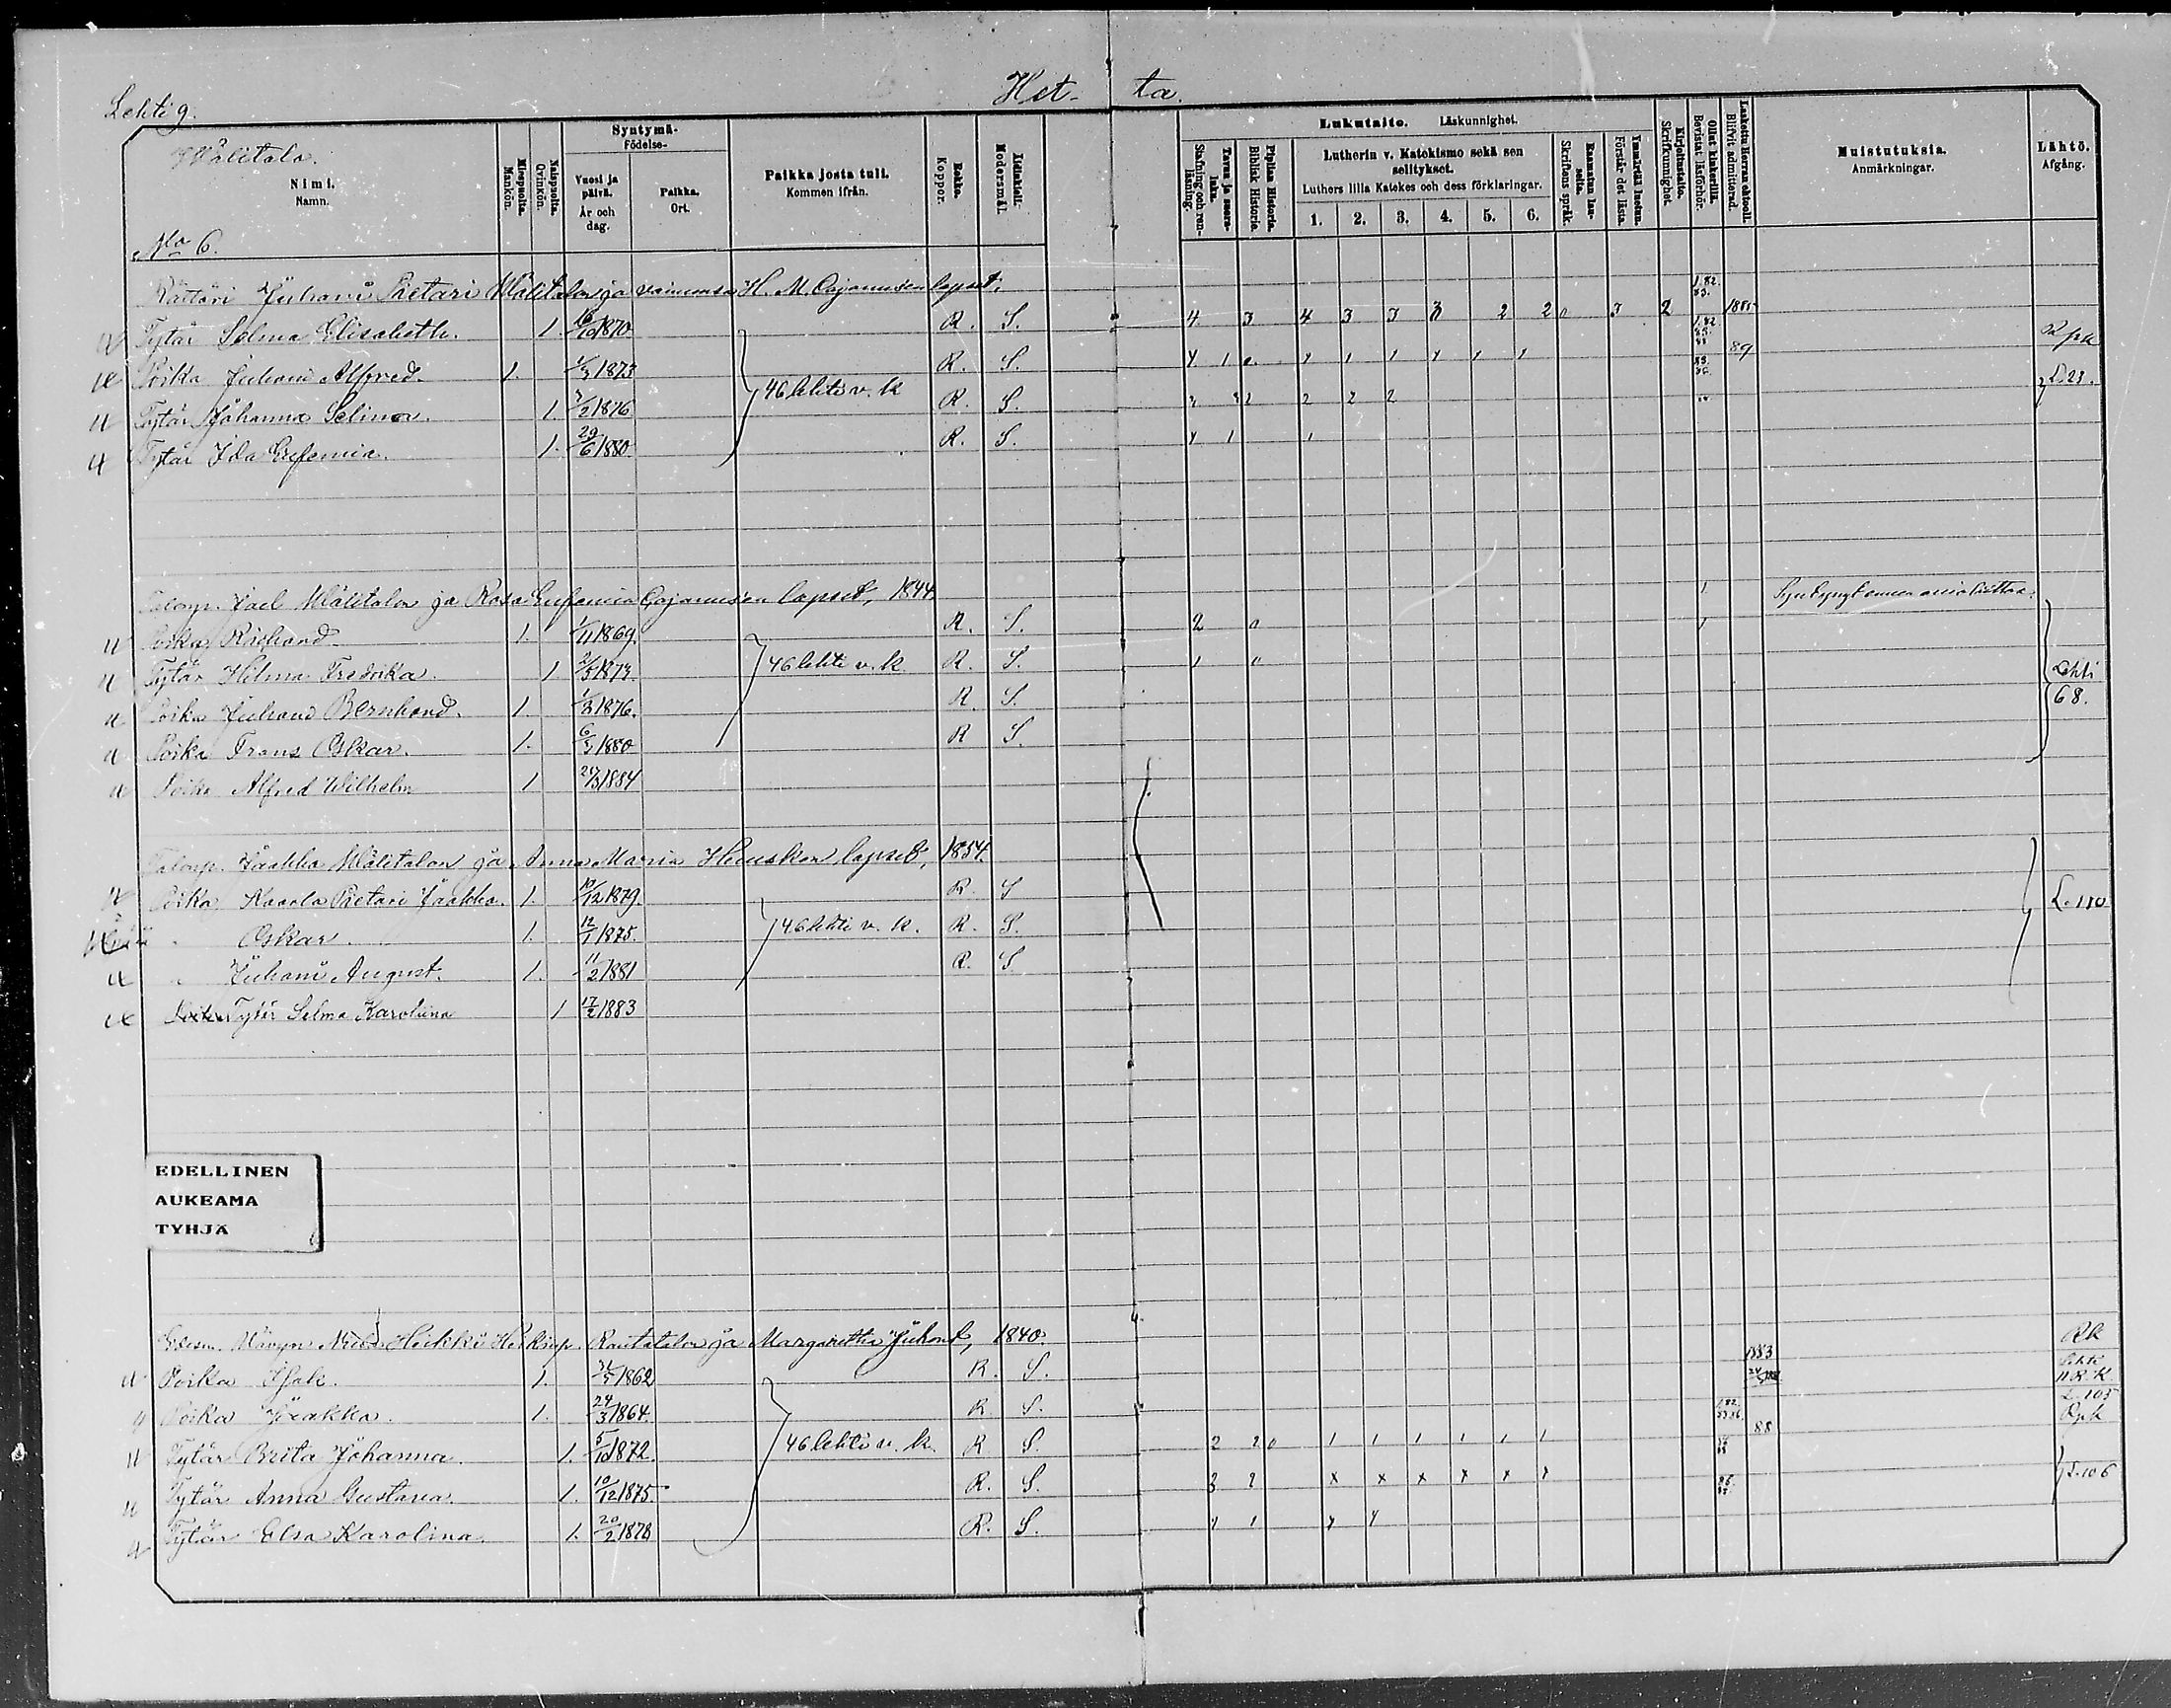 Het- ta.
Lehti 9.
Wälitalo.
Nimi.
Namn.
Miespuolta.
Mankön.
Naispuolta.
Qvinkön.
Syntymä-
Födelse-
Vuosi ja päivä.
År och dag.
Paikka.
Ort.
Paikka josta tuli.
Kommen ifrån.
Rokko.
Koppor.
Äidinkieli.
Modersmål.
Lukutaito. Läskunnighet.
Tavaa ja suoraluku.
Stafning och renläsning.
Piplian Historia.
Biblisk Historia.
Lutherin v. Katekismo sekä sen selitykset.
Luthers lilla Katekes och dess förklaringar.
1. 2. 3. 4. 5. 6.
Raamatun lauseita.
Skriftens språk.
Ymmärtää luetun.
Förstår det lästa.
Kirjoitustaito.
Skrifkunnighet.
Ollut kinkerillä.
Bevistat läsförhör.
Laskettu Herran ehtoolle.
Blifvit admitterad.
Muistutuksia.
Anmärkningar.
Lähtö.
Afgång.
No 6.
Rättäri Juhani Pietari Wälitalon ja vaimonsa H. M. Cajanuksen lapset,
Tytär Selma Elisabeth. 1. 16/10 1870 R. S. 4 3 4 3 3 3 2 2 0 3 2 1885
Poika Juhani Alfred. 1. 1/3 1873 R. S. 89 Rpk
Tytär Johanna Selima. 1. 7/2 1876 46 lehti v. k R. S. 2 2 2 L. 23.
Tytär Ida Eufemia. 1. 29/6 1880 R. S.
Talonp. Isak Wälitalon ja Rosa Eufemia Cajanuksen lapset, 1844.
Poika Richard 1. 1/11 1869 R. S. 2 0
Tytär Hilma Fredrika. 1 2/5 1873. 46 lehti v. k. R. S. 1 0 Lehti
Poika Juhani Bernhard. 1. 1/3 1876. R. S. 68.
Poika Frans Oskar. 1. 6/3 1880 R S.
Poika Alfred Wilhelm 1 24/3 1884
Talonp. Jaakko Wälitalon ja Anna Maria lapset, 1854.
Poika Kaarlo Pietari Jaakko. 1. 10/12 1879 R. S L. 110
" Oskar. 1. 12/1 1875. 46 lehti v. k. R. S.
" Juhani August. 1. 11/2 1881 R. S
Tytär Selma Karoliina 1 17/2 1883
EDELLINEN
AUKEAMA
TYHJÄ
Heikki Heikinp. Rautatalon ja Margaretha Juhont, 1840. Rk
Poika Isak. 1. 1862 R. S. 1883
Poika Jaakko. 1. 24/3 1864. R S. L. 105
Tytär Brita Johanna. 1. 5/10 1872. 46 lehti v. k. R S. 2 2 0 1 1 1 1 1 1 88 Rpk
Tytär Anna Gustava. 1. 10/12 1875. R. S. 3 2 x x x x x x L. 106
Tytär Elsa Karolina. 1. 20/2 1878 R. S.